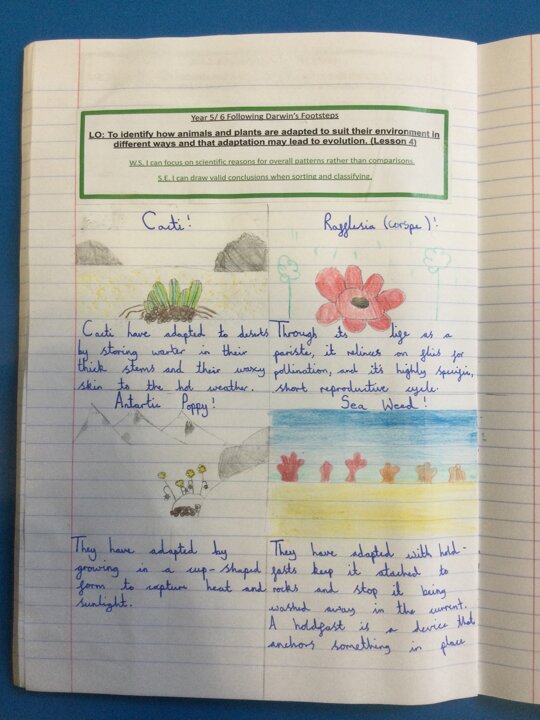 Year 5/ 6 Following Darwin's Footsteps
LO: To identify how animals and plants are adapted to suit their environment in
different ways and that adaptation may lead to evolution. (Lesson 4)
W.S. I can focus on scientific reasons for overall patterns rather than comparisons.
S.E. I can draw valid conclusions when sorting and classifying.
Cacti!
Cacti have adapted to deserts
by storing warter in their
thick stems and their waxy
skin to the hot weather.
Rafflesia (corspe)!
Through its life as a
pariste, it relines on flis for
pollination, and it's highly specific,
short reproductive cycle.
Antartic Poppy!
They have adapted by
growing in a cup-shaped
form to capture heat and
sunlight.
Sea Weed!
They have adapted with hold-
fasts keep it atached to
rocks and stop it being
washed away in the current.
A holdfast is a device that
anchors something in place